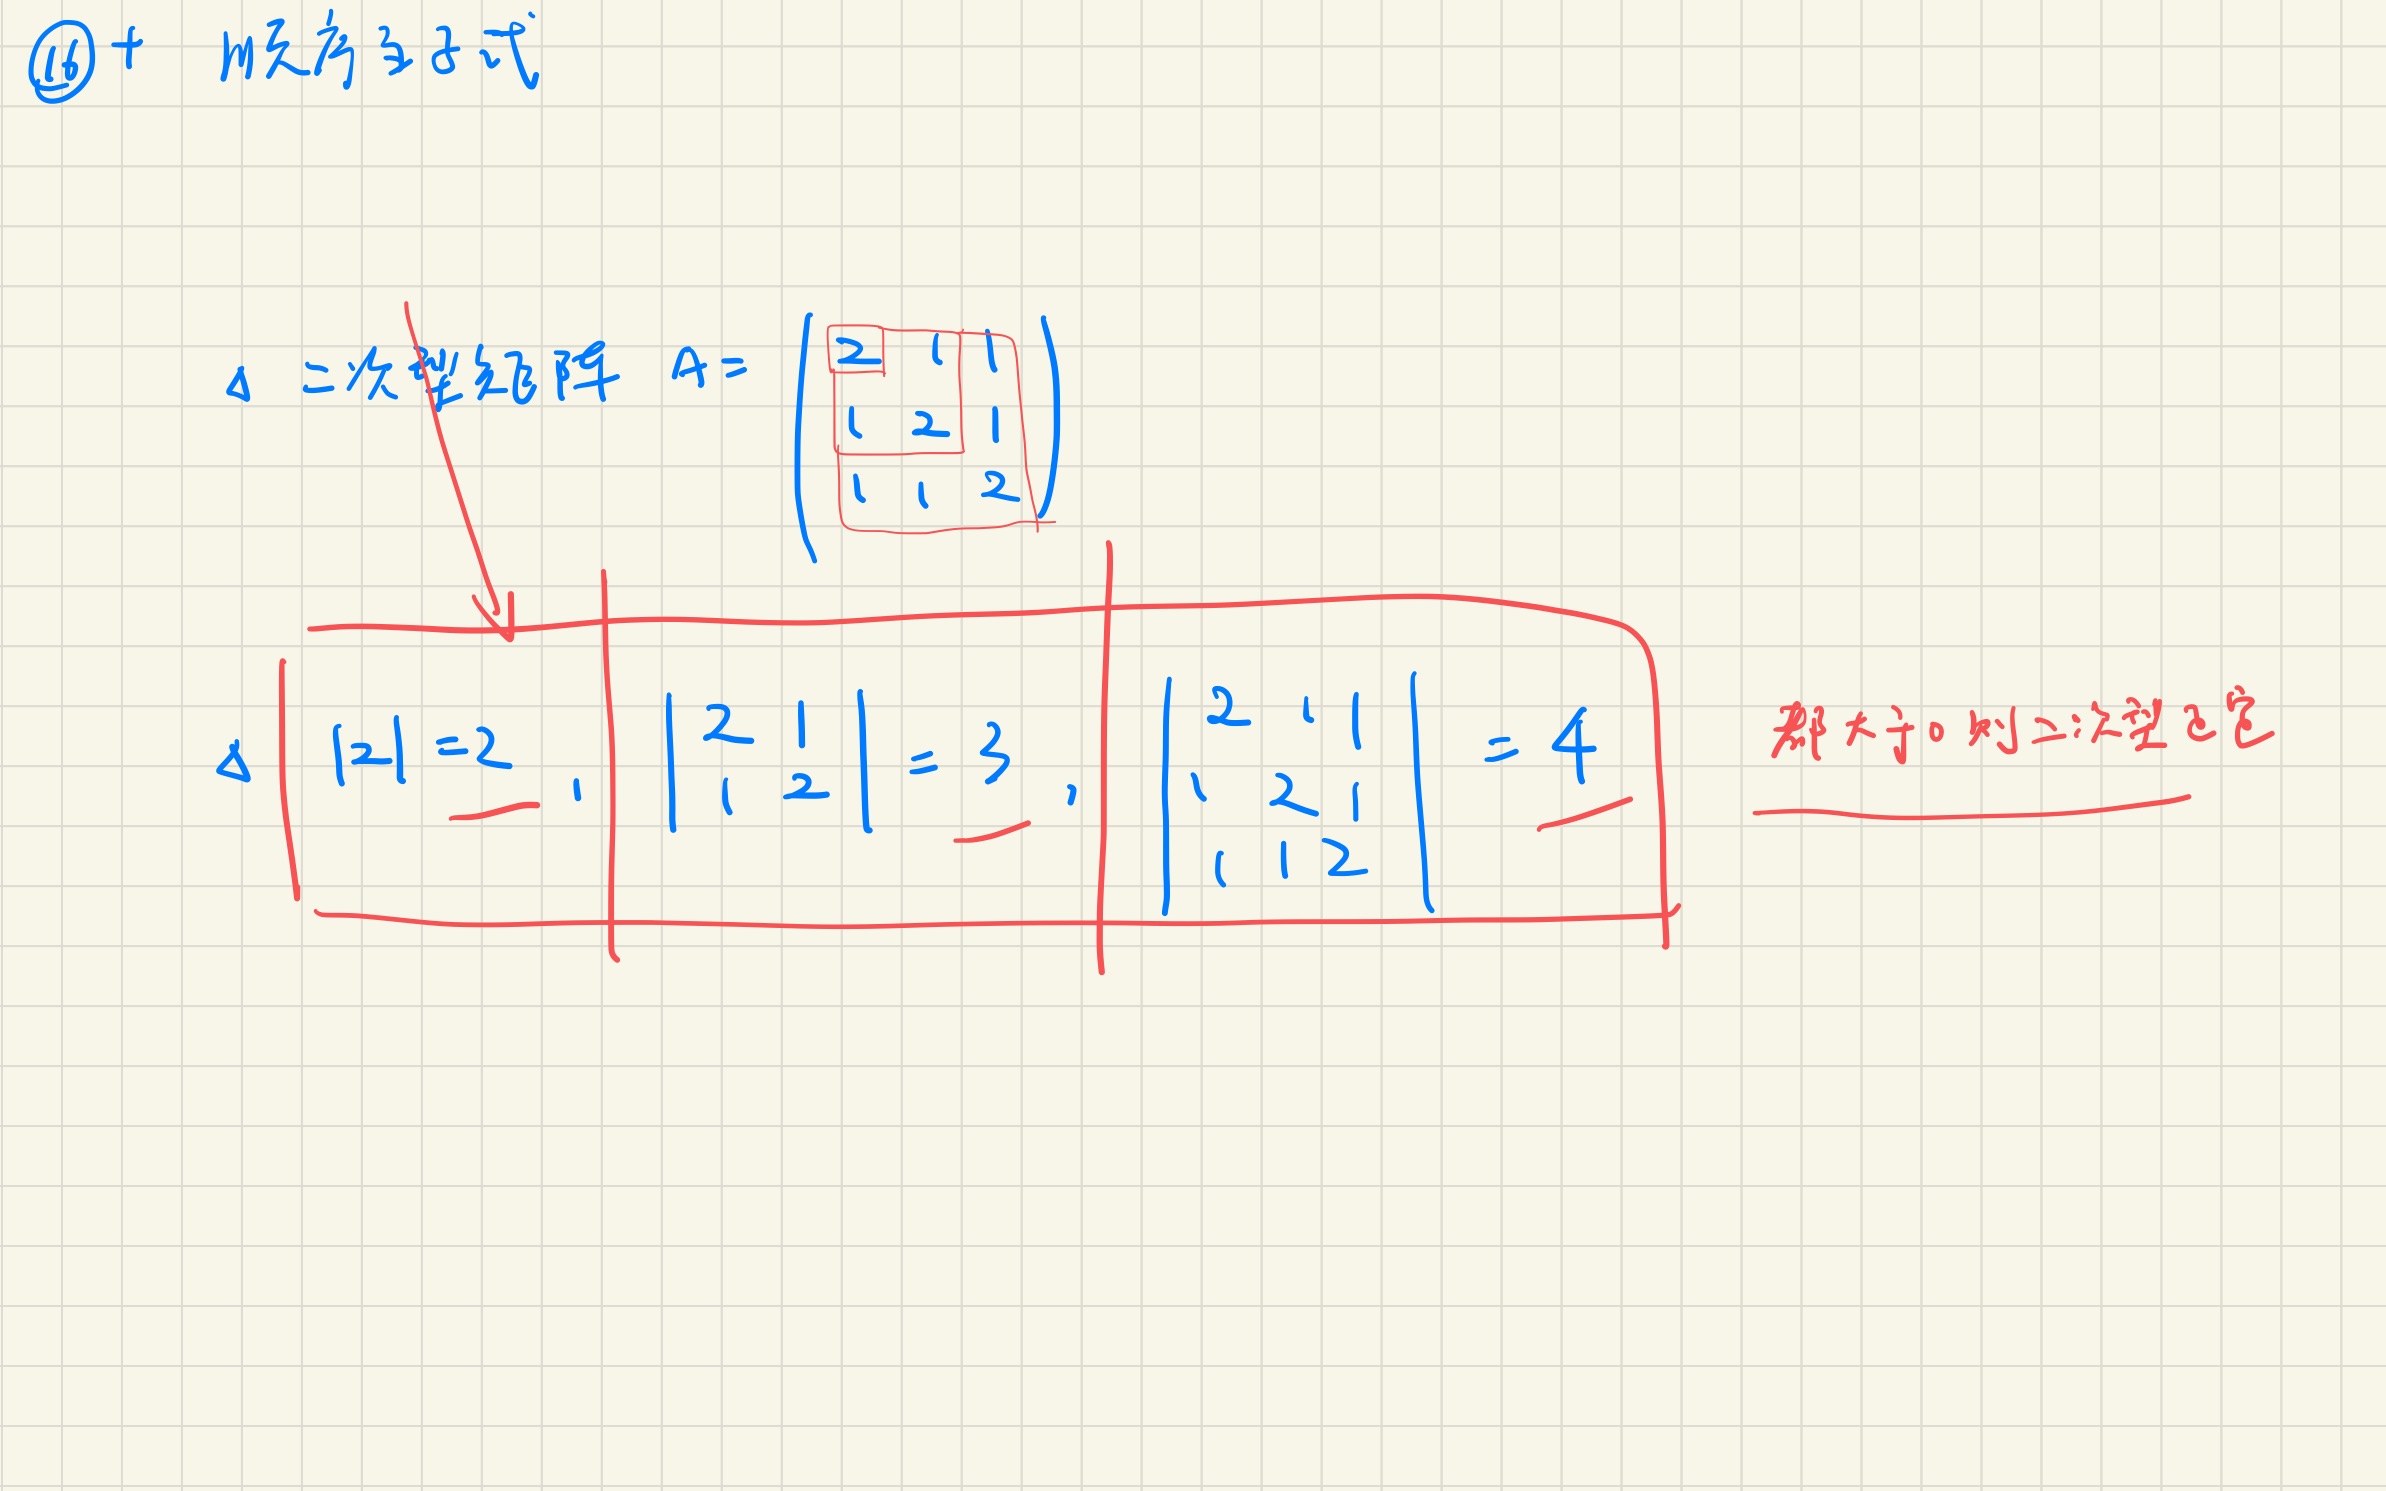 ⑪+ 顺序主子式
△ 二次型矩阵 A = ( 2 1 1
1 2 1
1 1 2 )
△ |2| = 2 , | 2 1
1 2 | = 3 , | 2 1 1
1 2 1
1 1 2 | = 4 都大于0则二次型正定